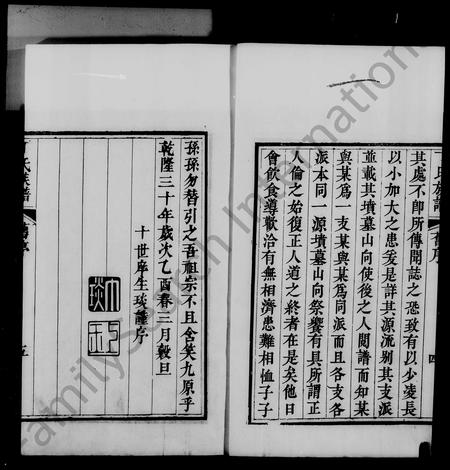 其處不卽所傳聞誌之恐致有以少凌長
以小加大之患爰是詳其源流别其支派
並載其墳墓山向使後之人閱譜而知某
與某爲一支某與某爲同派而且各支各
派本同一源墳墓山向祭饗有具所謂正
人倫之始復正人道之終者在是矣他日
會飲食尊歡洽有無相濟患難相恤子子
四
孫孫勿替引之吾祖宗不且含笑九原乎
乾隆三十年歲次乙酉春三月穀旦
十世庠生琰謹序
五
FamilySearch International